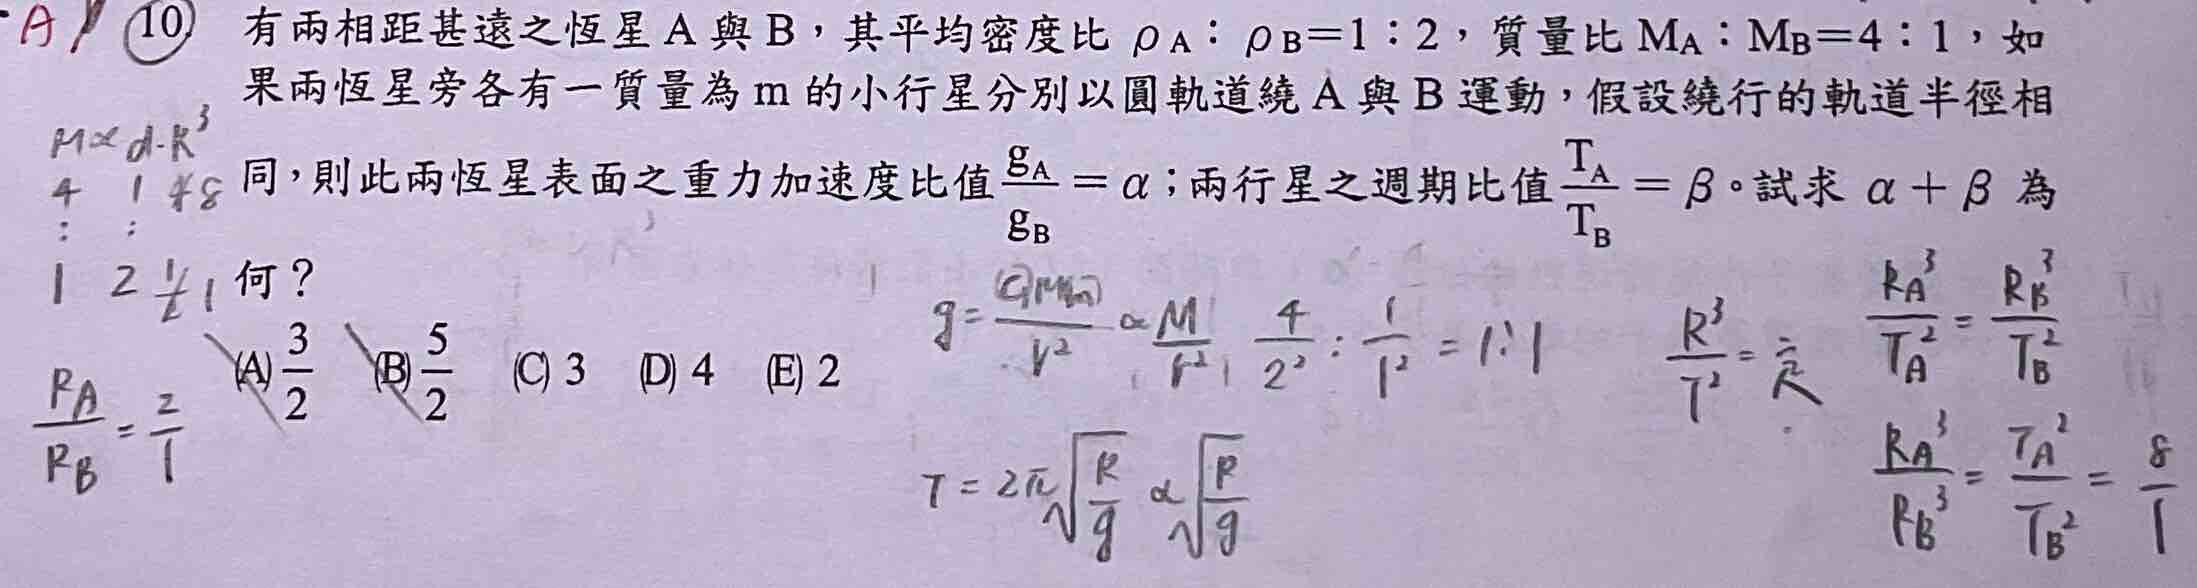 A
10 有兩相距甚遠之恆星 A 與 B，其平均密度比 ρA：ρB=1：2，質量比 MA：MB=4：1，如
果兩恆星旁各有一質量為 m 的小行星分別以圓軌道繞 A 與 B 運動，假設繞行的軌道半徑相
同，則此兩恆星表面之重力加速度比值 gA/gB = α；兩行星之週期比值 TA/TB = β。試求 α + β 為
何？
(A) 3/2 (B) 5/2 (C) 3 (D) 4 (E) 2
M ∝ d·R³
4 1 8
: :
1 2 1/2 1
RA/RB = 2/1
g = GMm/r² ∝ M/r² 4/2² : 1/1² = 1:1
T = 2π√(R/g) ∝ √(R/g)
R³/T² = 定
RA³/TA² = RB³/TB²
RA³/RB³ = TA²/TB² = 8/1